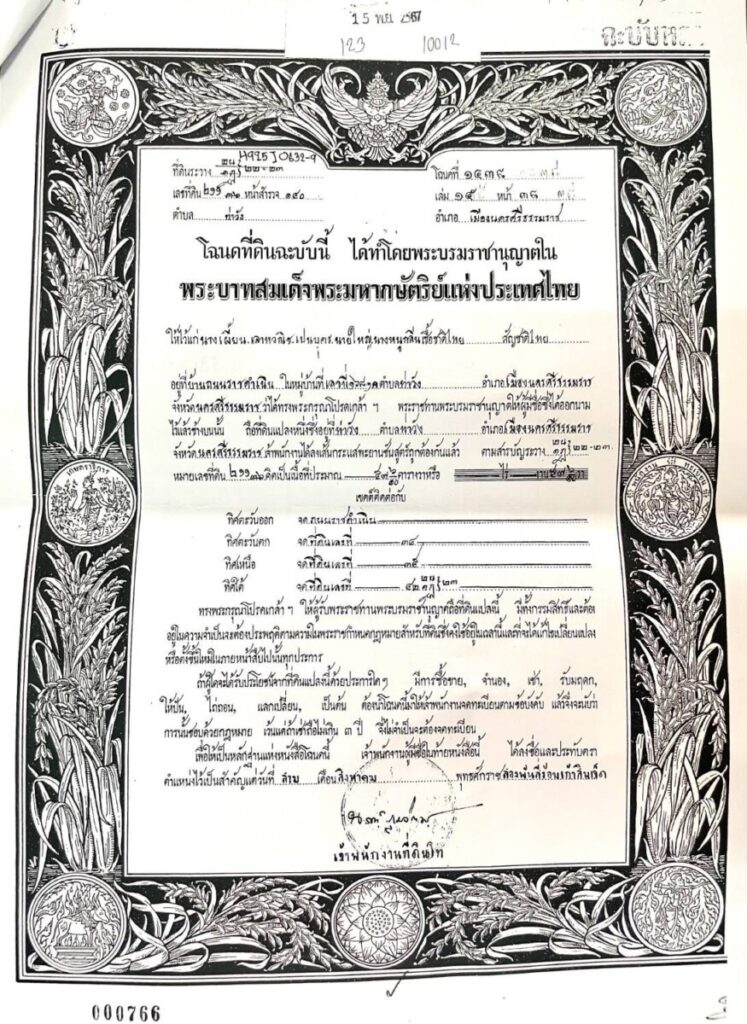 15 พย 2567
123 10012
ฉะบับ
ที่ดินระวาง ๒๒-๒๓
โฉนดที่ ๑๔๓๘
เลขที่ดิน ๒๙๑ หน้าสำรวจ ๑๙๐
เล่ม ๑๕ หน้า ๓๘
ตำบล ท่าวัง
อำเภอ เมืองนครศรีธรรมราช
โฉนดที่ดินฉะบับนี้ ได้ทำโดยพระบรมราชานุญาตใน
พระบาทสมเด็จพระมหากษัตริย์แห่งประเทศไทย
ให้ไว้แก่ นาง เชื้อชาติไทย สัญชาติไทย
อยู่ที่บ้านถนนราชดำเนิน ในหมู่บ้านที่ ตำบลท่าวัง อำเภอเมืองนครศรีธรรมราช
จังหวัดนครศรีธรรมราช ว่าได้ทรงพระกรุณาโปรดเกล้า ฯ พระราชทานพระบรมราชานุญาตให้ผู้มีชื่อซึ่งได้ออกนาม
ไว้แล้วข้างบนนั้น ถือที่ดินแปลงหนึ่งซึ่งอยู่ที่ท่าวัง ตำบลท่าวัง อำเภอเมืองนครศรีธรรมราช
จังหวัดนครศรีธรรมราช เจ้าพนักงานได้ลงเส้นกระแสทะยานชันสูตร์ถูกต้องกันแล้ว ตามสำรับระวาง ๒๒-๒๓
หมายเลขที่ดิน ๒๙๑ คิดเป็นเนื้อที่ประมาณ ตารางวาหรือ ไร่ งาน วา
เขตต์ติดต่อกับ
ทิศตะวันออก จดถนนราชดำเนิน
ทิศตะวันตก จดที่ดินเลขที่ ๓๔
ทิศเหนือ จดที่ดินเลขที่ ๓๕
ทิศใต้ จดที่ดินเลขที่ ๔๒
ทรงพระกรุณาโปรดเกล้า ฯ ให้ผู้รับพระราชทานพระบรมราชานุญาตถือที่ดินแปลงนี้ มีทั้งกรรมสิทธิ์และต้อง
อยู่ในความจำเป็นจะต้องประพฤติตามความในพระราชกำหนดกฎหมายสำหรับที่ดินซึ่งคงใช้อยู่ในเวลานี้และที่จะได้แก้ไขเปลี่ยนแปลง
หรือตั้งขึ้นใหม่ในภายหน้าสืบไปนั้นทุกประการ
ถ้าผู้ใดจะได้รับประโยชน์จากที่ดินแปลงนี้ด้วยประการใดๆ มีการซื้อขาย, จำนอง, เช่า, รับมฤดก,
ให้ปัน, ไถ่ถอน, แลกเปลี่ยน, เป็นต้น ต้องนำโฉนดนี้มาให้เจ้าพนักงานจดทะเบียนตามข้อบังคับ แล้วจึ่งจะนับว่า
การนั้นชอบด้วยกฎหมาย เว้นแต่ถ้าเช่าถือไม่เกิน ๓ ปี จึ่งไม่จำเป็นจะต้องจดทะเบียน
เพื่อให้เป็นหลักฐานแห่งหนังสือโฉนดนี้ เจ้าพนักงานผู้มีชื่อในท้ายหนังสือนี้ ได้ลงชื่อและประทับตรา
ตำแหน่งไว้เป็นสำคัญแต่วันที่ สาม เดือนสิงหาคม พุทธศักราช สองพันสี่ร้อยเก้าสิบเจ็ด
เจ้าพนักงานที่ดินโท
000766